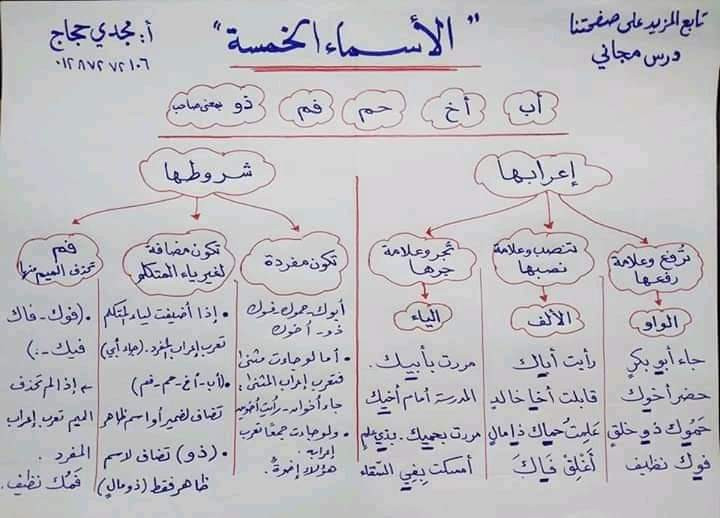 تابع المزيد على صفحتنا
ورس مجاني
"الأسماء الخمسة"
أ: مجدي حجاج
٠١٢٨٧٢٧٢١٠٦
أب
أخ
حم
فم
ذو بمعنى صاحب
إعرابها
تُرفع وعلامة
رفعها
الواو
جاء أبو بكرٍ
حضر أخوك
حَمُوك ذو خلقٍ
فوك نظيف
تنصب وعلامة
نصبها
الألف
رأيت أباك
قابلت أخا خالد
عَلِمتُ حُماك ذا مالٍ
أَغْلِقْ فَاكَ
تُجر وعلامة
جرها
الياء
مررت بأبيك.
المدرسة أمام أخيك
مررت بحميك. بذي علمٍ
أمسكت بِفِي السقاء
شروطها
تكون مفردة
أبوك - حموك - فوك
ذو - أخوك
• أما لو جاءت مثنى
فتعرب إعراب المثنى
جاء أخوان - رأيت أخوين
• ولو جاءت جمعًا تعرب
إعرابه
هؤلاء إخوةٌ
تكون مضافة
لغير ياء المتكلم
• إذا أضيفت لياء المتكلم
تعرب إعراب المفرد. (جاء أبي)
• (أب - أخ - حم - فم)
تضاف لضمير أو اسم ظاهر
• (ذو) تضاف لاسم
ظاهر فقط (ذو مالٍ)
فم
تحذف الميم منها
• (فوك - فاك
فيك -:)
إذا لم تحذف
الميم تعرب إعراب
المفرد.
فَمُك نظيف.